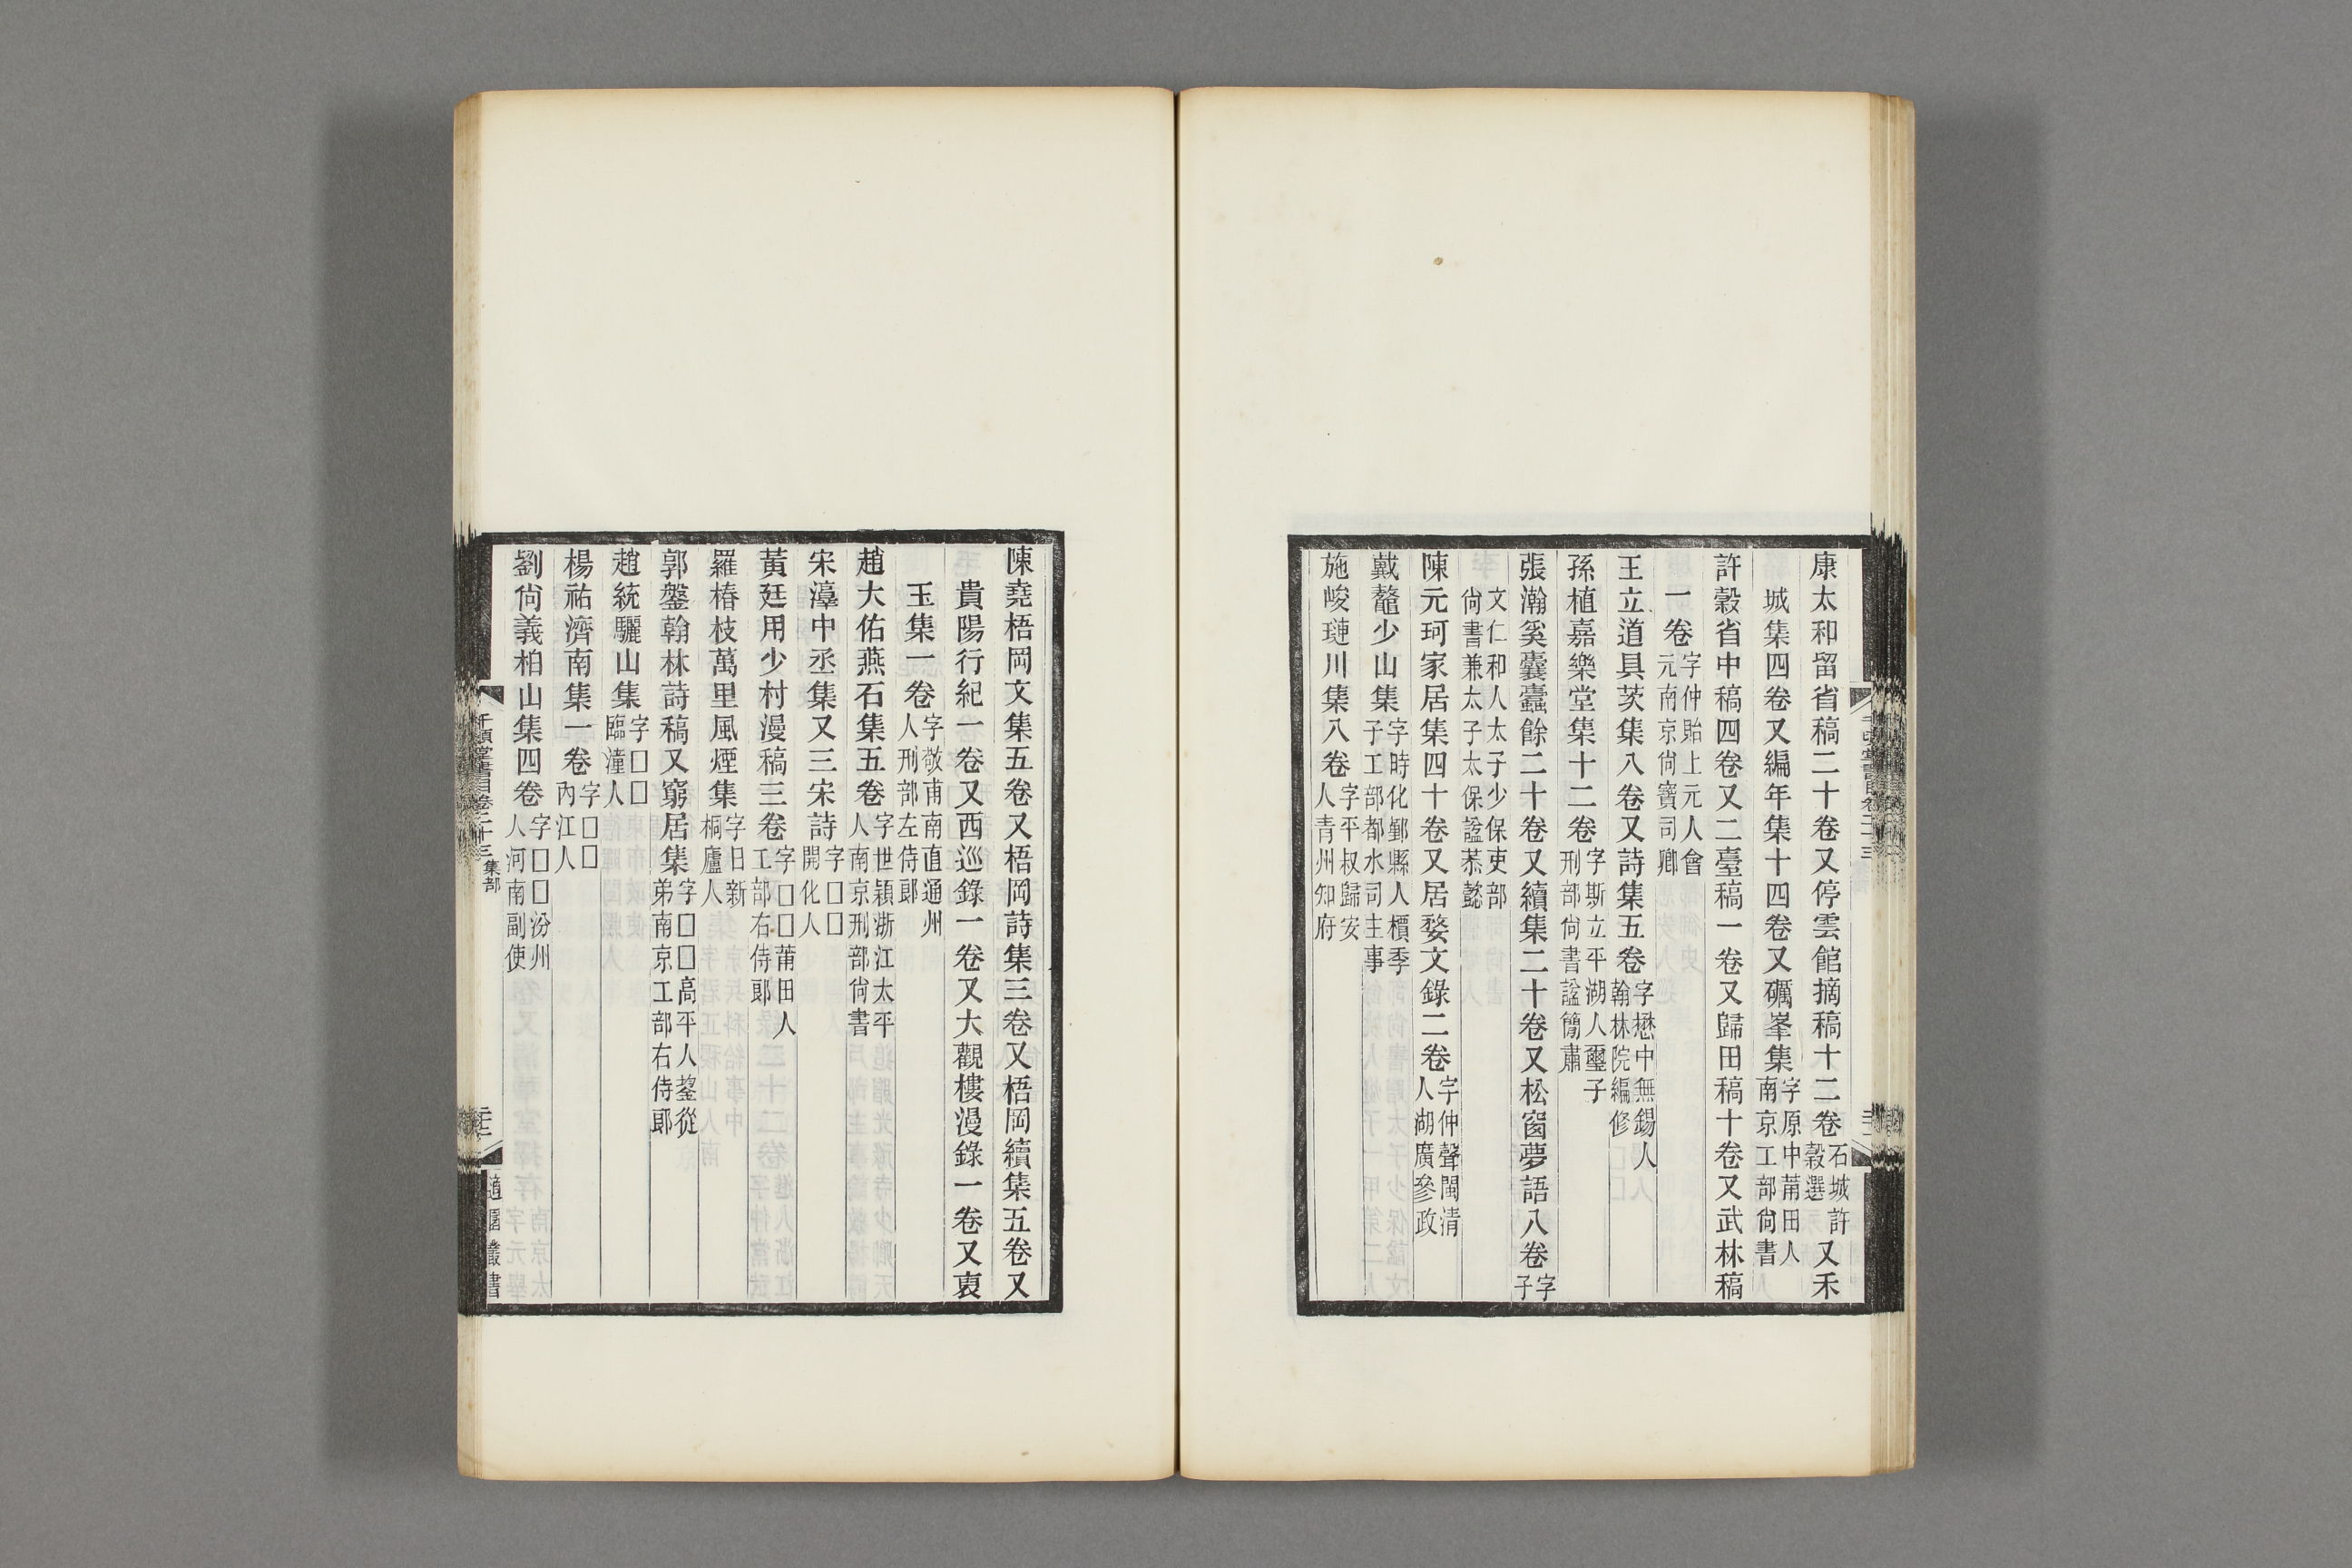 康太和留省稿二十卷又停雲館摘稿十二卷石城許穀選又禾
城集四卷又編年集十四卷又礪峯集字原中莆田人南京工部尙書
許穀省中稿四卷又二臺稿一卷又歸田稿十卷又武林稿
一卷字仲貽上元人會元南京尙寶司卿
王立道具茨集八卷又詩集五卷字懋中無錫人翰林院編修
孫植嘉樂堂集十二卷字斯立平湖人璽子刑部尙書諡簡肅
張瀚奚囊蠹餘二十卷又續集二十卷又松窗夢語八卷字子
文仁和人太子少保吏部尙書兼太子太保諡恭懿
陳元珂家居集四十卷又居婺文錄二卷字仲聲閩清人湖廣參政
戴鼇少山集字時化鄞縣人櫝季子工部都水司主事
施峻璉川集八卷字平叔歸安人青州知府
陳堯梧岡文集五卷又梧岡詩集三卷又梧岡續集五卷又
貴陽行紀一卷又西巡錄一卷又大觀樓漫錄一卷又裒
玉集一卷字敬甫南直通州人刑部左侍郎
趙大佑燕石集五卷字世穎浙江太平人南京刑部尙書
宋淳中丞集又三宋詩字□□開化人
黃廷用少村漫稿三卷字□□莆田人工部右侍郎
羅椿枝萬里風煙集字日新桐廬人
郭鋬翰林詩稿又窮居集字□□高平人鋆從弟南京工部右侍郎
趙統驪山集字□□臨潼人
楊祐濟南集一卷字□□內江人
劉尙義柏山集四卷字□□汾州人河南副使
千頃堂書目卷二十三 集部
適園叢書